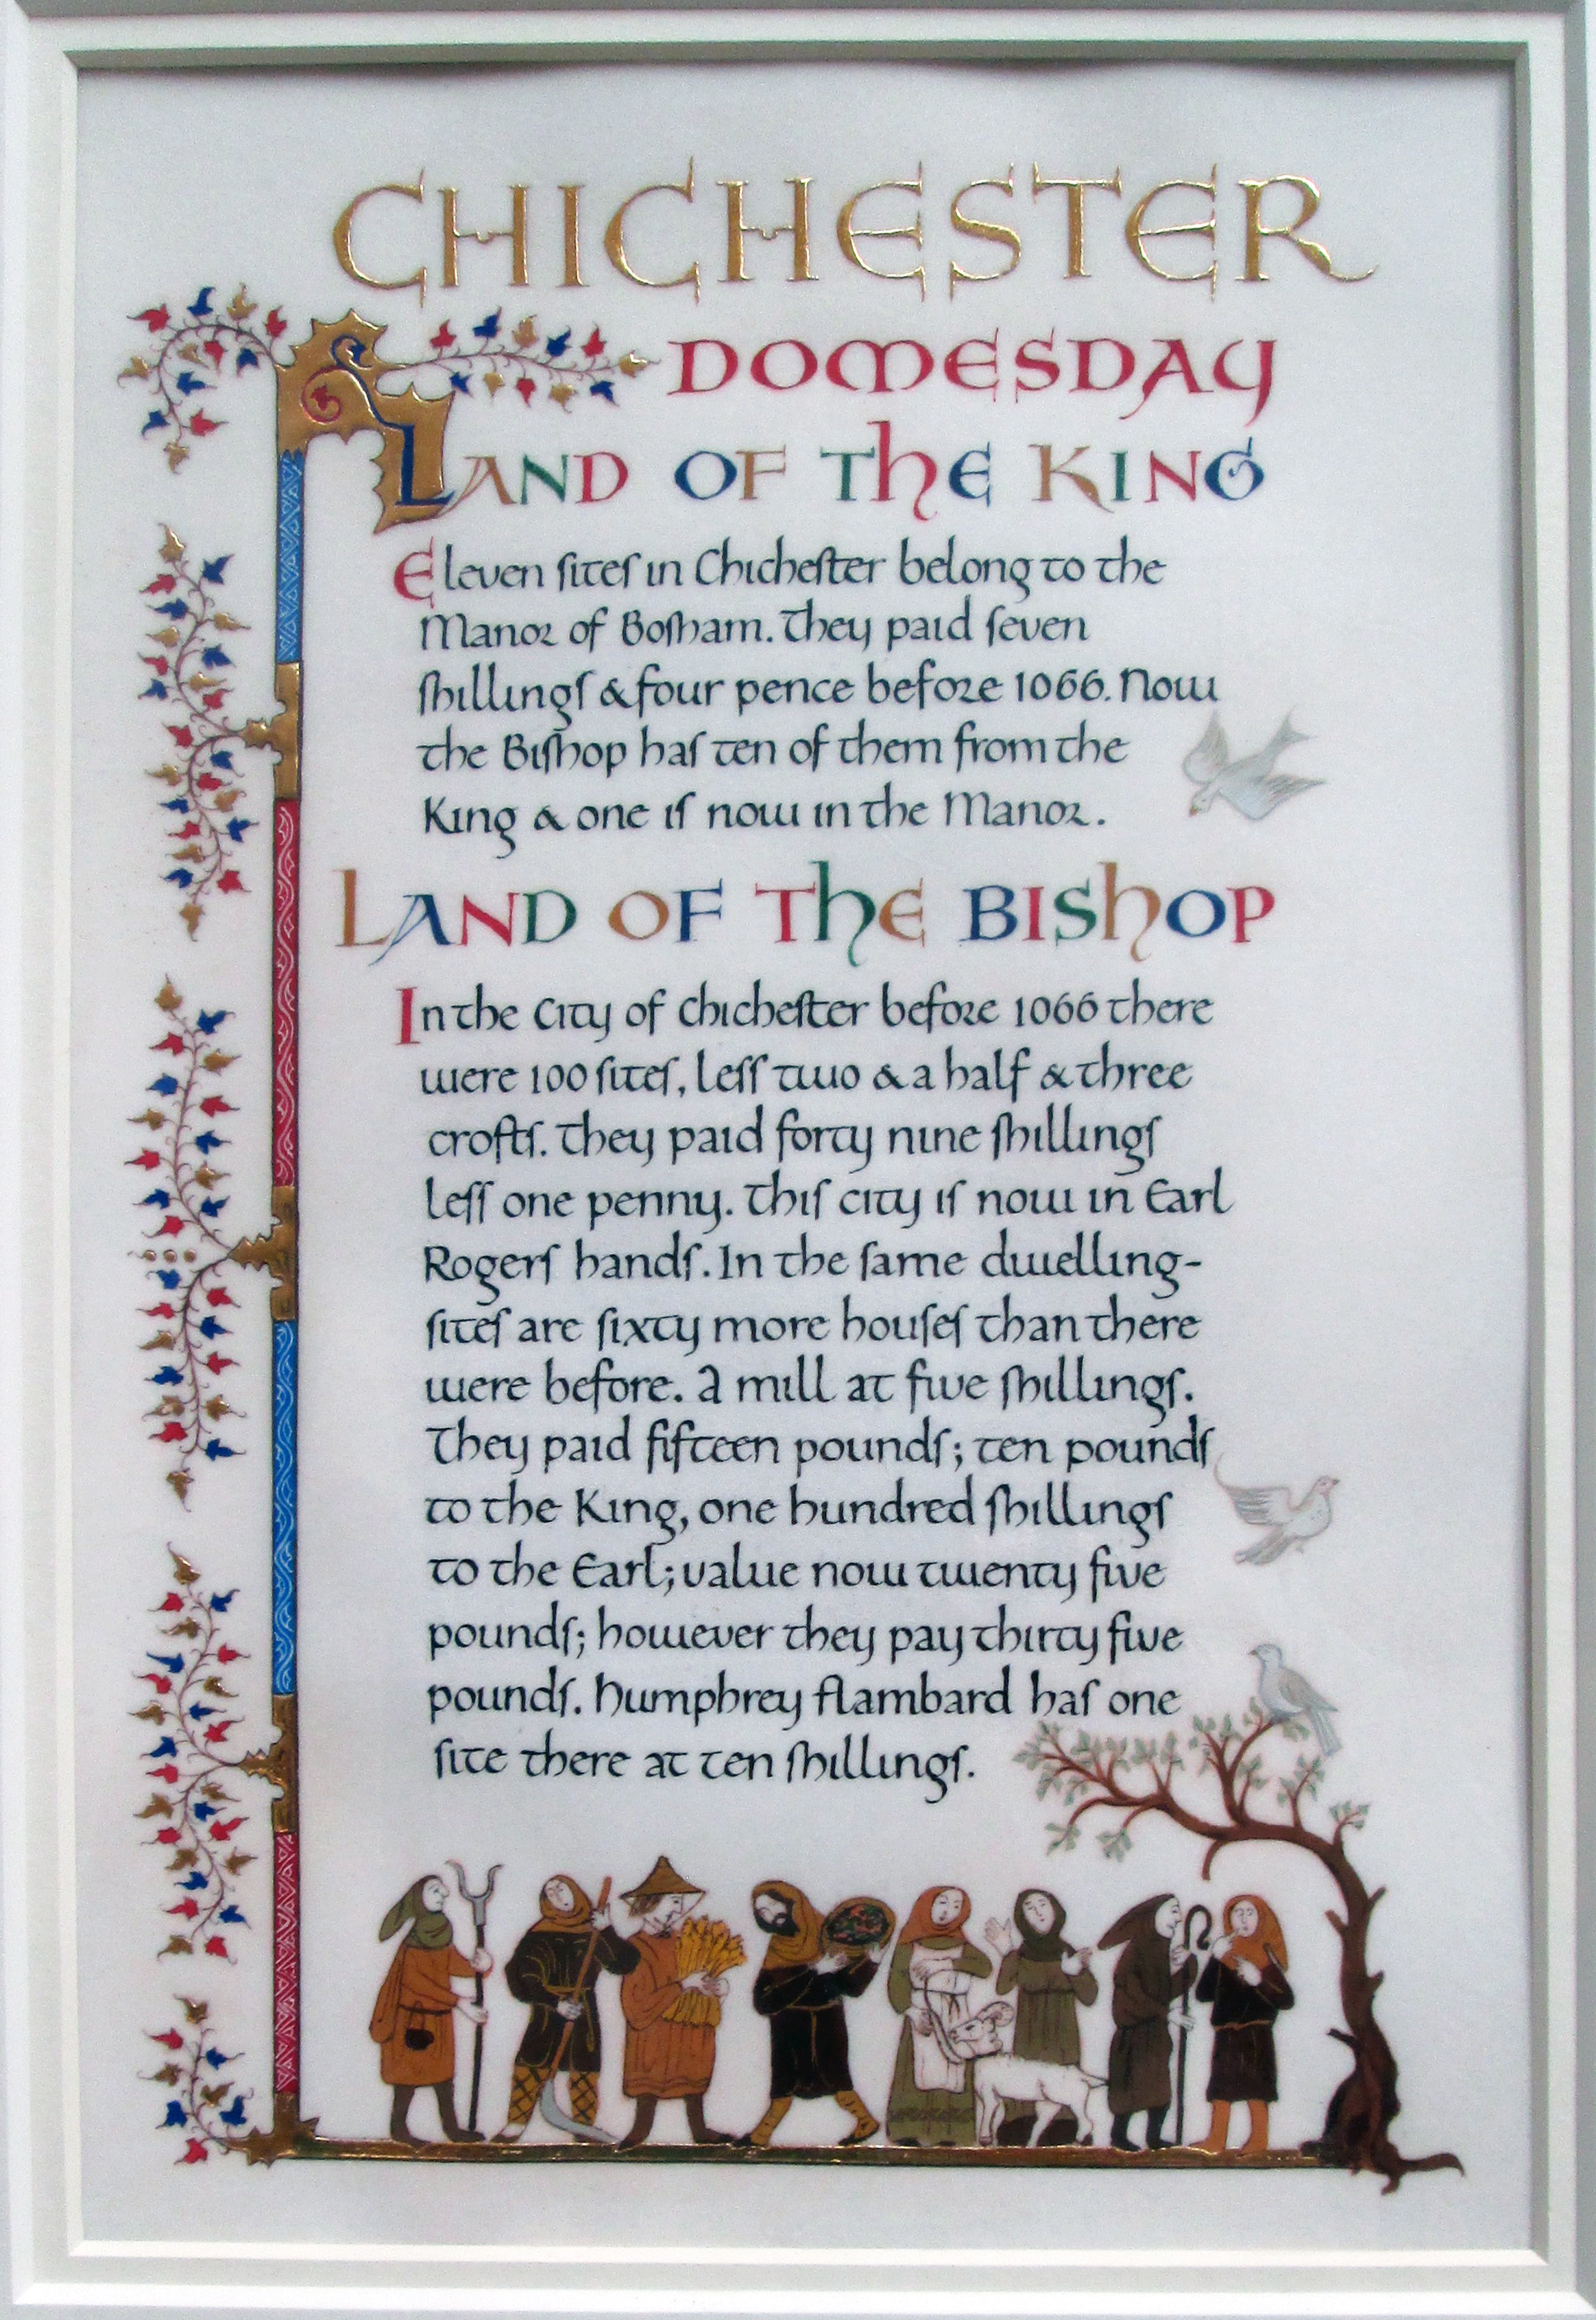 CHICHESTER
DOMESDAY
LAND OF THE KING
Eleven ſiteſ in Chicheſter belong to the
Manor of Boſham. They paid ſeven
ſhillingſ & four pence before 1066. Now
the Biſhop haſ ten of them from the
King & one iſ now in the Manor.
LAND OF THE BISHOP
In the City of Chicheſter before 1066 there
were 100 ſiteſ, leſſ two & a half & three
croftſ. They paid forty nine ſhillingſ
leſſ one penny. Thiſ city iſ now in Earl
Rogerſ handſ. In the ſame dwelling-
ſiteſ are ſixty more houſeſ than there
were before. A mill at five ſhillingſ.
They paid fifteen poundſ; ten poundſ
to the King, one hundred ſhillingſ
to the Earl; value now twenty five
poundſ; however they pay thirty five
poundſ. Humphrey flambard haſ one
ſite there at ten ſhillingſ.